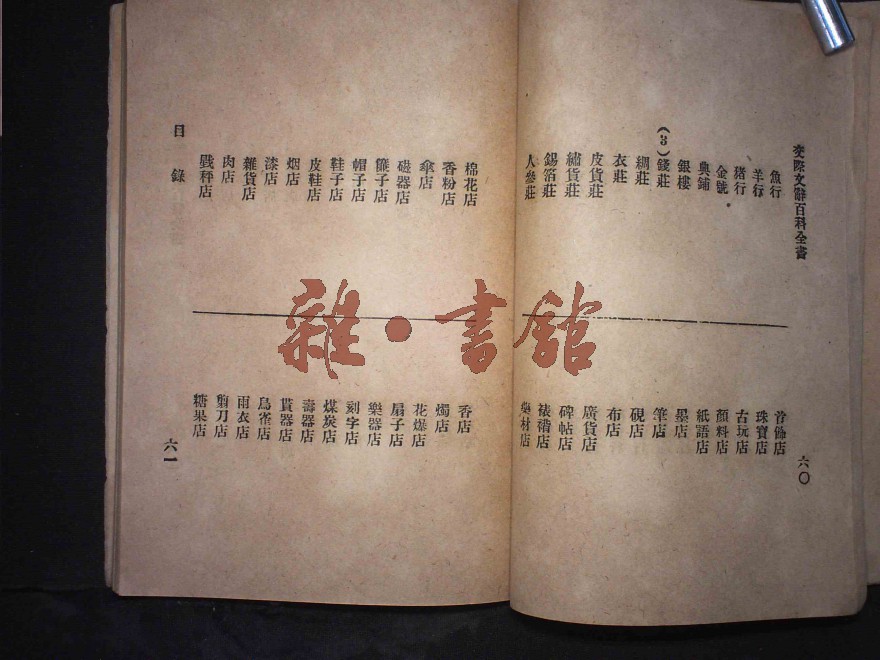 交際文辭百科全書
魚行
羊行
豬行
金號
典鋪
銀樓
(3)錢莊
綢莊
衣莊
皮貨莊
繡貨莊
錫箔莊
人參莊
首飾店
珠寶店
古玩店
顏料店
紙語店
墨店
筆店
硯店
布店
廣貨店
碑帖店
裱褙店
藥材店
六〇
棉花店
香粉店
傘店
磁器店
帽子店
鞋子店
皮鞋店
烟店
漆店
雜貨店
肉店
戥秤店
目錄
香店
燭店
花爆店
扇子店
樂器店
刻字店
煤炭店
壽器店
鳥雀店
雨衣店
剪刀店
糖果店
六一
雜·書館